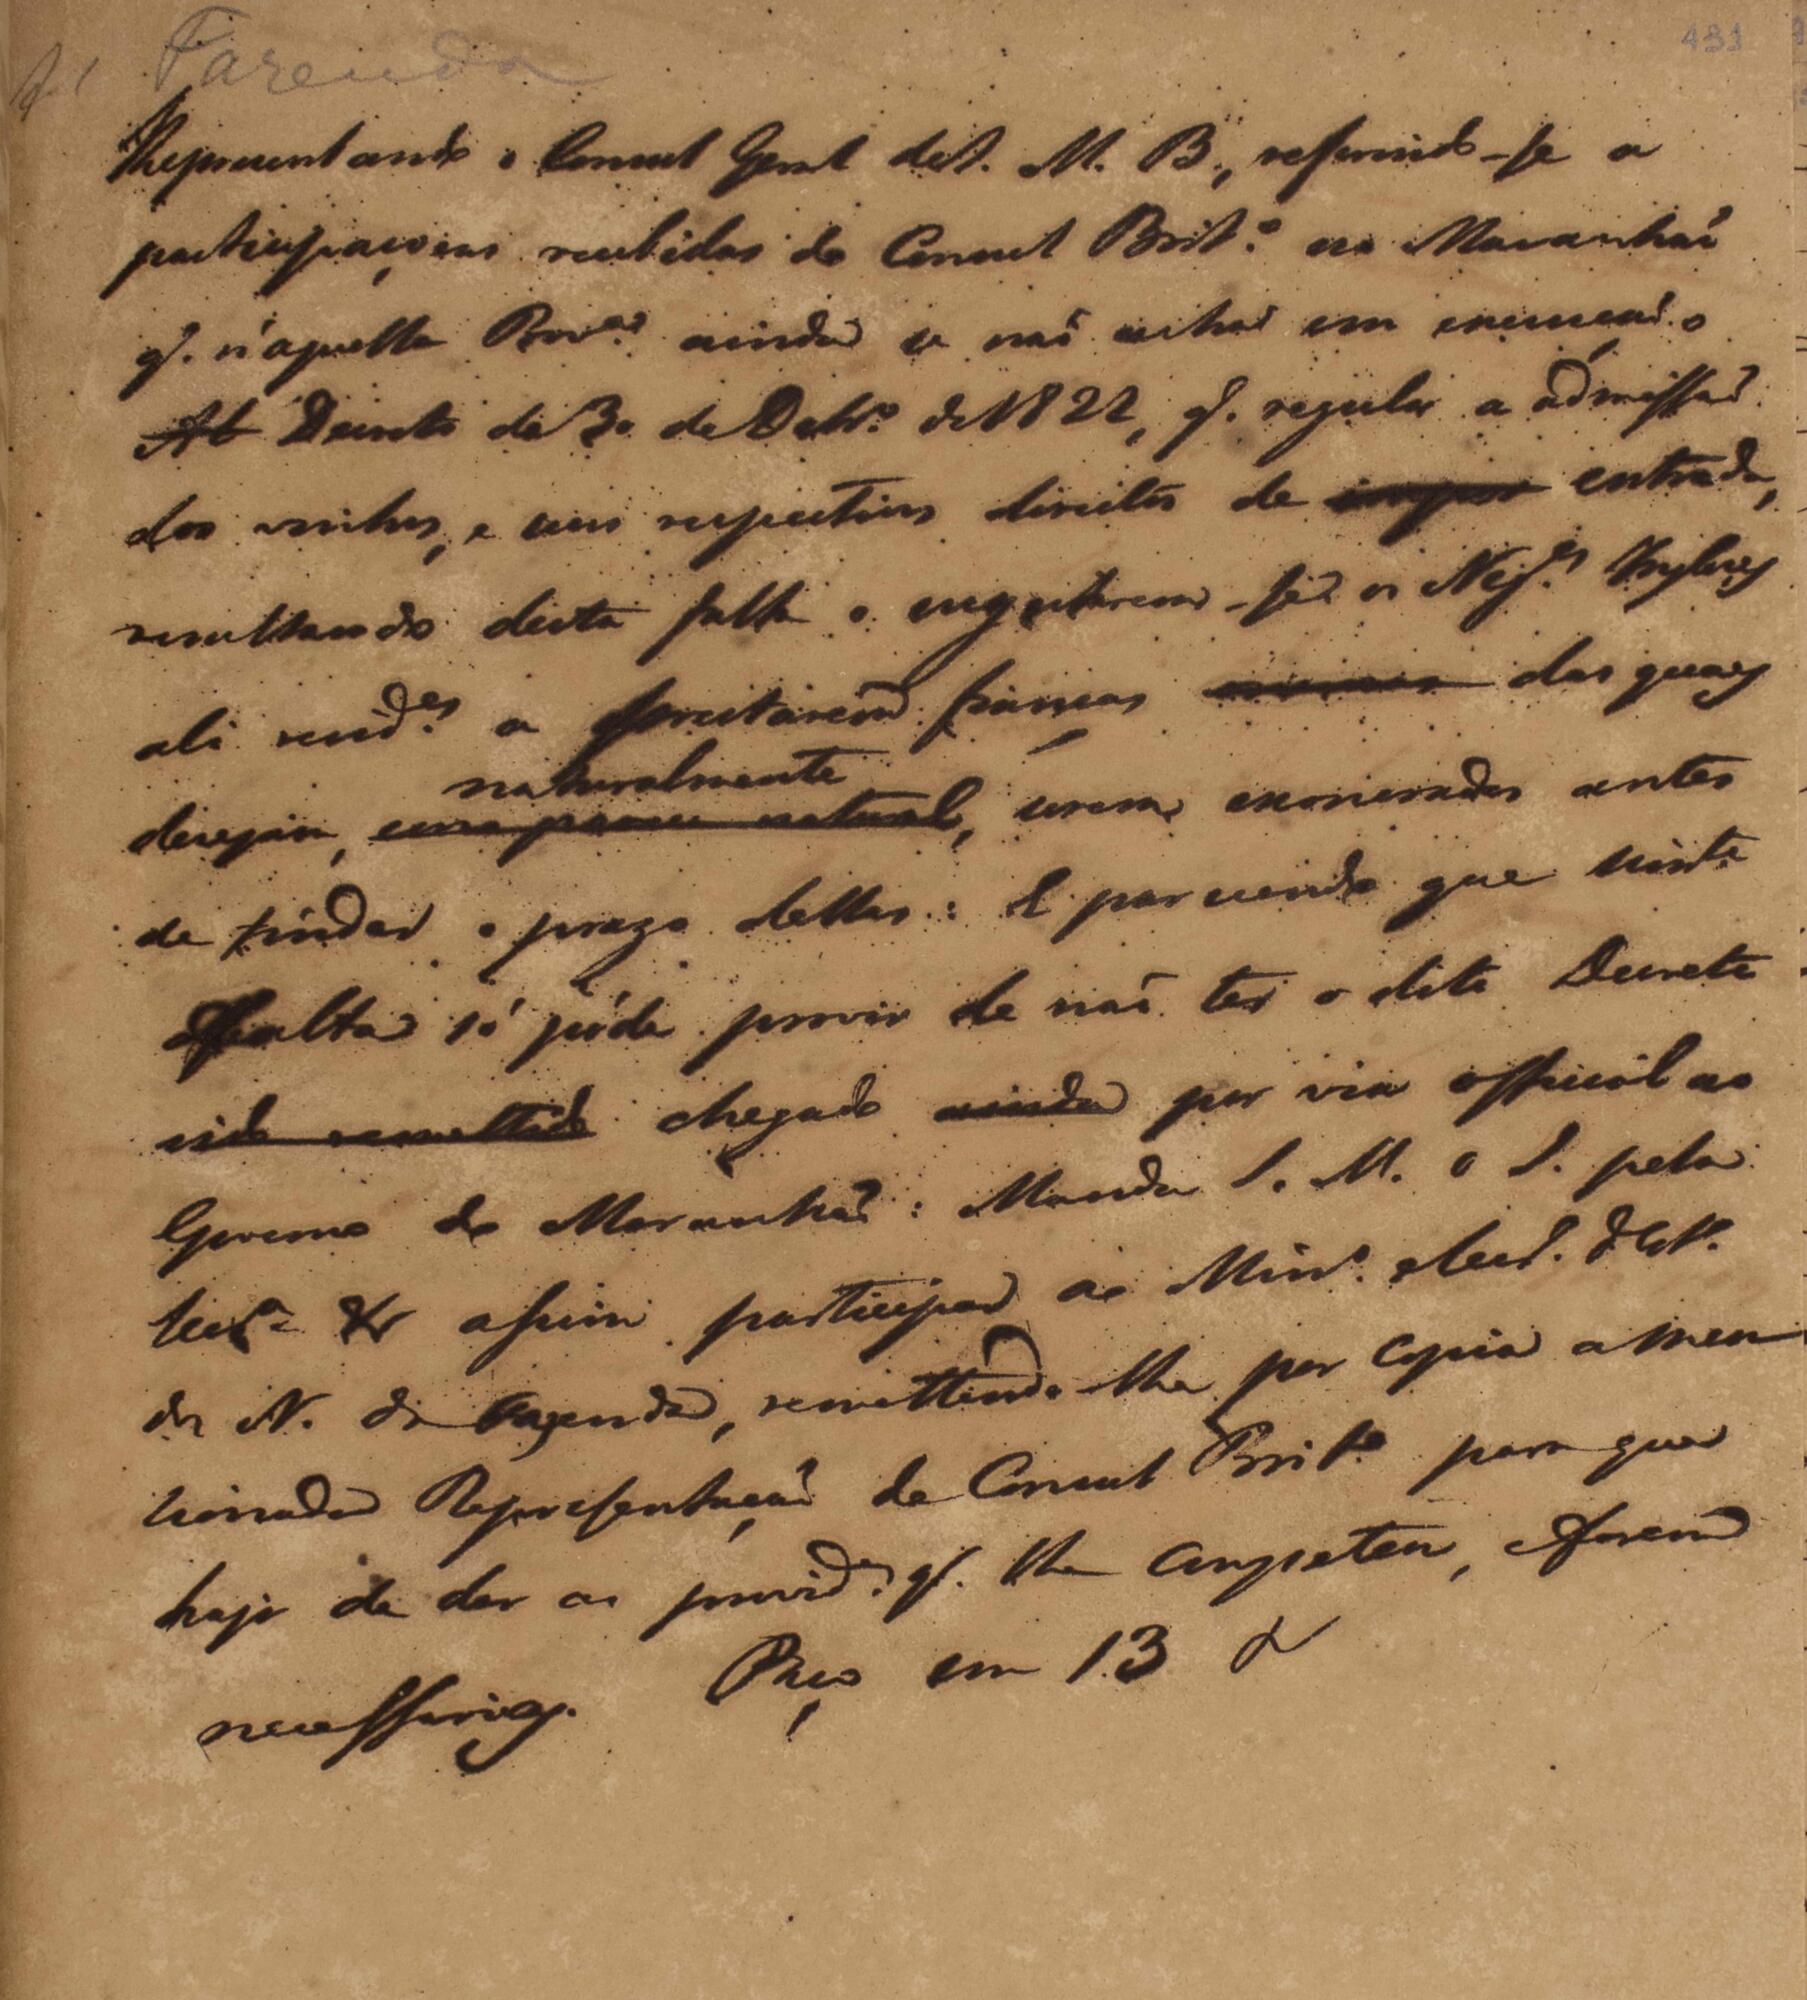 Fazenda
431
Representando o Consul Geral de S. M. B., referindo-se a
participaçoens recebidas do Consul Brit.º no Maranhaõ
q̃. n'aquella Prov.ª ainda se naõ acha em execuçaõ o
Decreto de 30 de Debr.º de 1822, q̃. regula a admissaõ
dos vinhos, e seus respectivos direitos de entrada,
resultando desta falta o sugeitarem-se os Neg.es Inglezes
ali resid.es a prestarem fianças das quaes
desejaõ, naturalmente
como parece natural, serem exonerados antes
de findar o prazo dellas: E parecendo que esta
falta só póde provir de naõ ter o dito Decreto
sido remettido chegado ainda por via official ao
Governo do Maranhaõ: Manda S. M. o I. pela
Secr.ª &r assim participar ao Min.º e Secr.º d'Est.º
dos N. da Fazenda, remettendo-lhe por copia a men
cionada Representaçaõ do Consul Brit.º para que
haja de dar as provid.as q̃. lhe competem, e forem
necessarias. Paço em 13